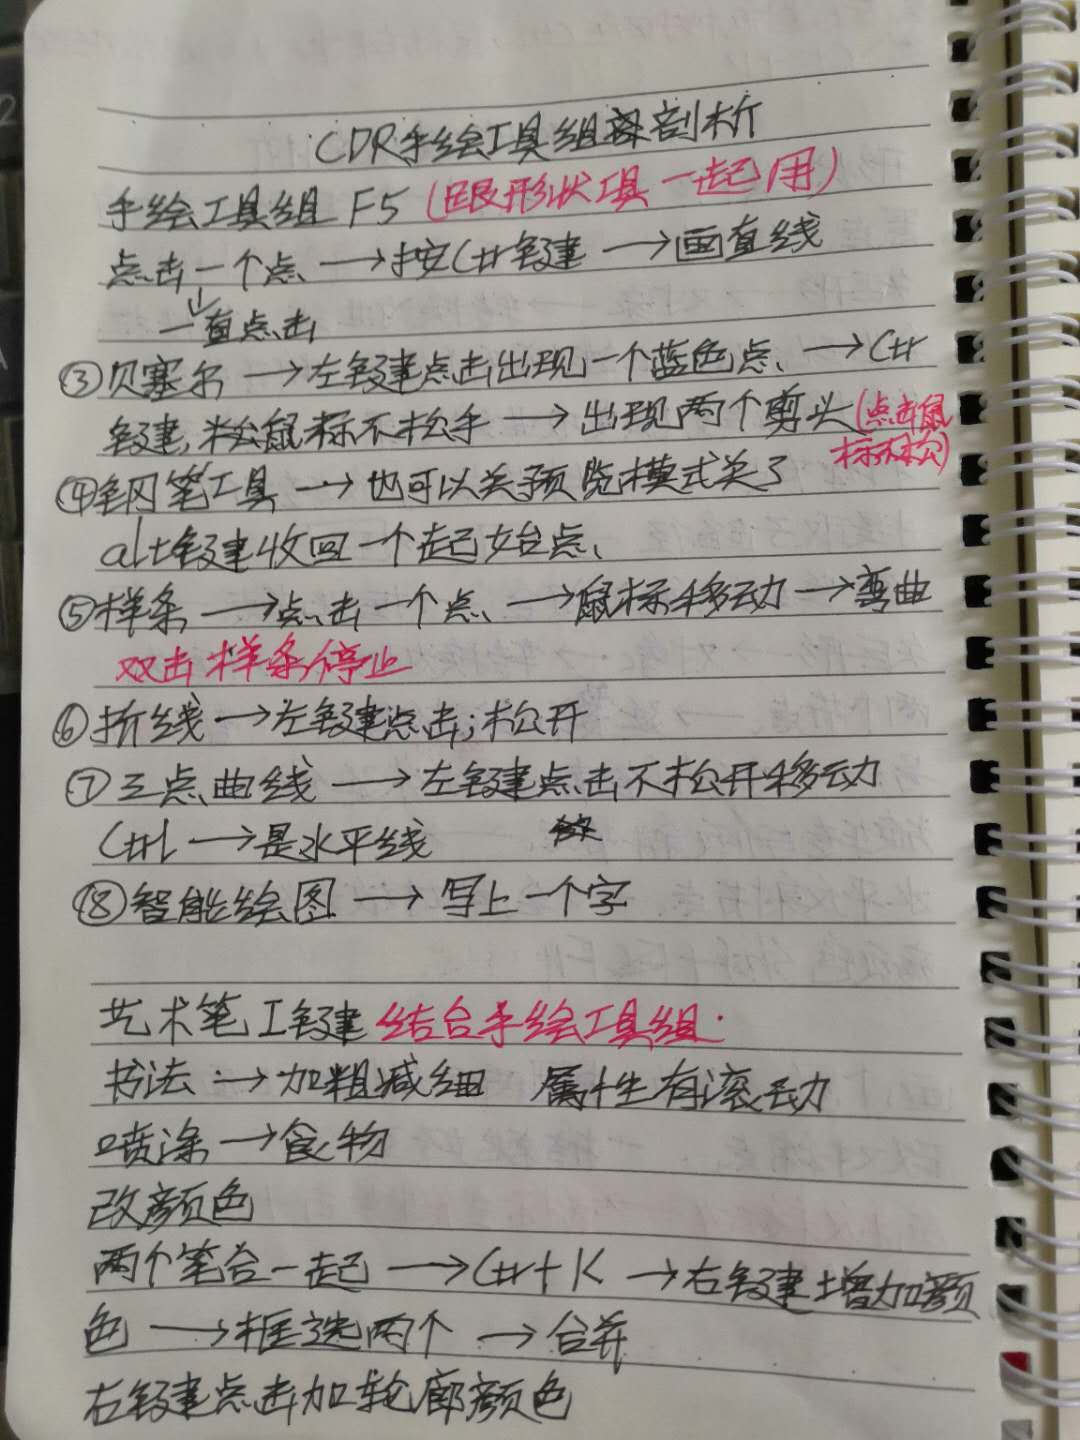 CDR手绘工具组剖析
手绘工具组 F5 (跟形状工具一起用)
点击一个点 → 按Ctr键 → 画直线
↓
一直点击
③贝塞尔 → 左键点击出现一个蓝色点 → Ctr
键,松鼠标不松手 → 出现两个剪头(点击鼠
标不松)
④钢笔工具 → 也可以关预览模式关了
alt键收回一个起始点
⑤样条 → 点击一个点 → 鼠标移动 → 弯曲
双击样条停止
⑥折线 → 左键点击;松开
⑦三点曲线 → 左键点击不松开移动
Ctrl → 是水平线
⑧智能绘图 → 写上一个字
艺术笔工键 结合手绘工具组.
书法 → 加粗减细 属性有滚动
喷涂 → 食物
改颜色
两个笔合一起 → Ctr+K → 右键增加颜
色 → 框选两个 → 合并
右键点击加轮廓颜色